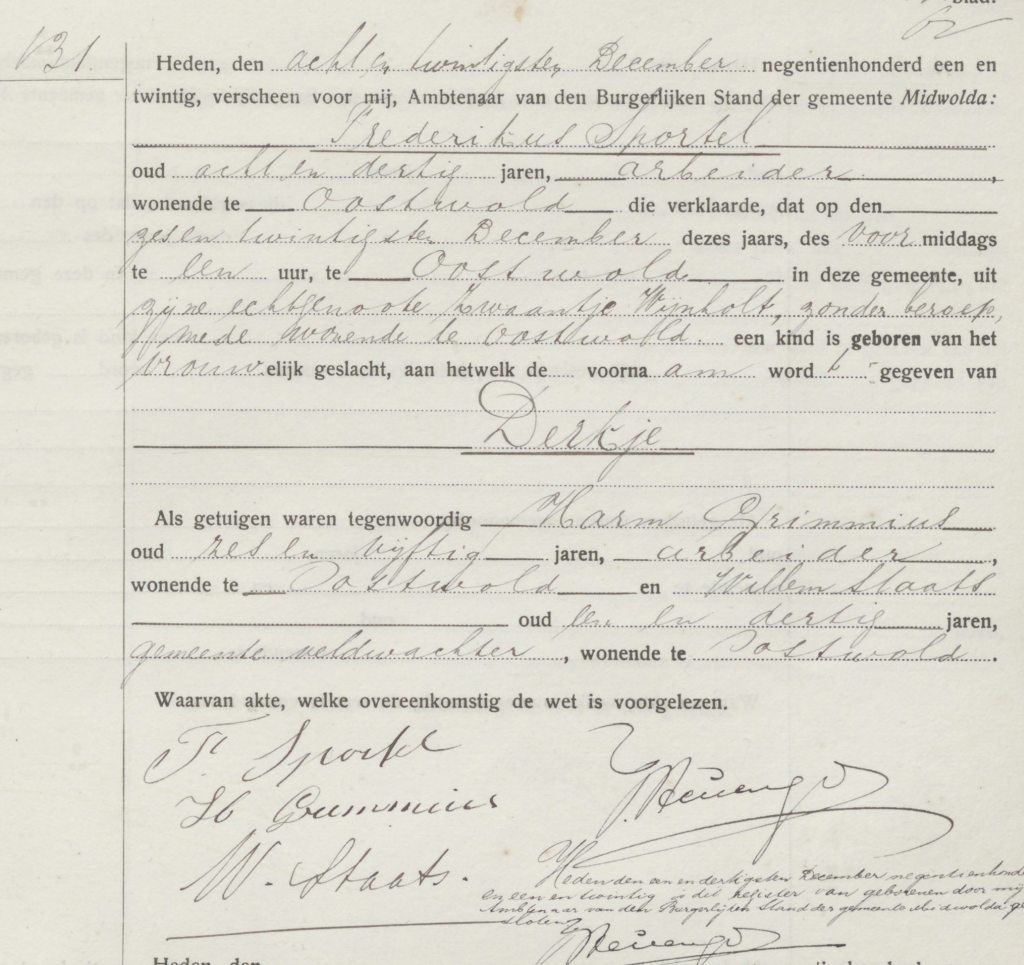 blad.
131.
Heden, den acht en twintigsten December negentienhonderd een en
twintig, verscheen voor mij, Ambtenaar van den Burgerlijken Stand der gemeente Midwolda:
Frederikus Sportel
oud acht en dertig jaren, arbeider,
wonende te Oostwold die verklaarde, dat op den
zesen twintigsten December dezes jaars, des voor middags
te een uur, te Oostwold in deze gemeente, uit
zijne echtgenoote Zwaantje Wijnholt, zonder beroep,
mede wonende te Oostwold een kind is geboren van het
vrouwelijk geslacht, aan hetwelk de voornaam wordt gegeven van
Derkje
Als getuigen waren tegenwoordig Harm Grimmius
oud zes en vijftig jaren, arbeider,
wonende te Oostwold en Willem Staats
oud een en dertig jaren,
gemeente veldwachter, wonende te Oostwold.
Waarvan akte, welke overeenkomstig de wet is voorgelezen.
F. Sportel
H Grimmius
W. Staats.
Heden den een en dertigsten December negentienhonde
en een en twintig is dit register van geborenen door mij
Ambtenaar van den Burgerlijken Stand der gemeente Midwolda ge
sloten
Heden, den